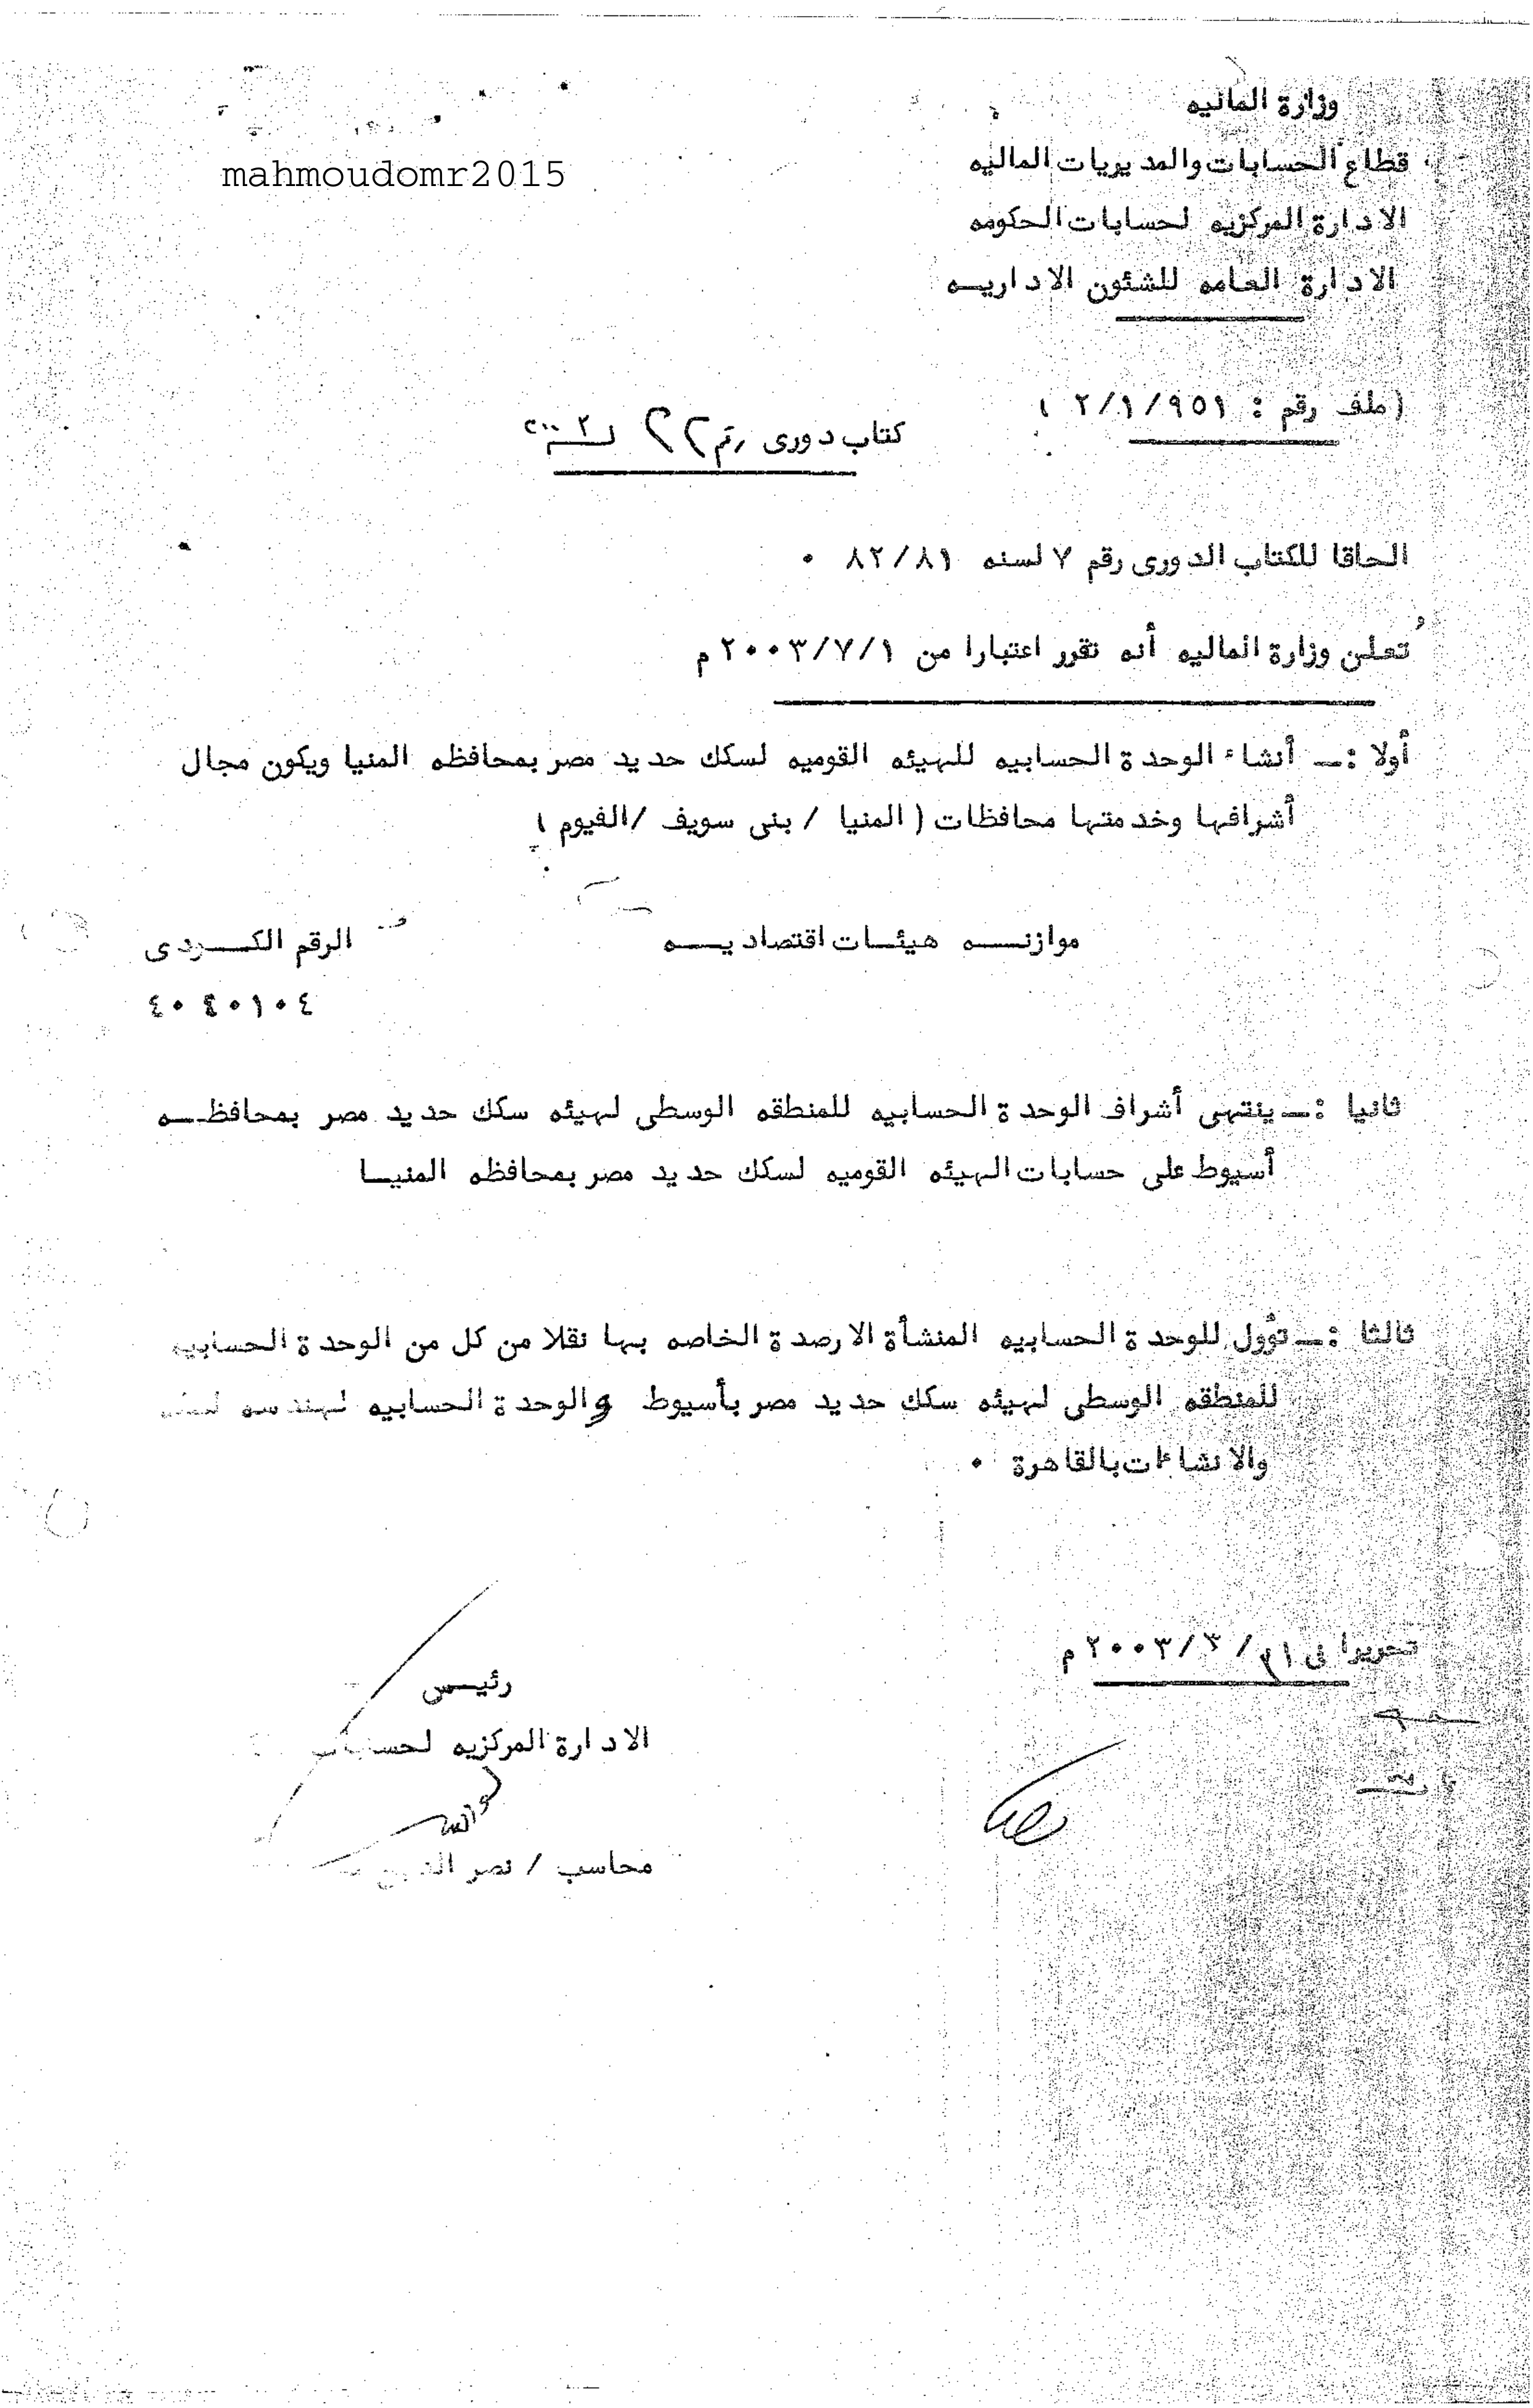 وزارة الماليه
mahmoudomr2015
قطاع الحسابات والمديريات الماليه
الادارة المركزيه لحسابات الحكومه
الادارة العامه للشئون الاداريـــه
(ملف رقم : ٢/١/٩٥١ )
كتاب دورى رقم ٢٢ لسنه ٢٠٠٣
الحاقا للكتاب الدورى رقم ٧ لسنه ٨٢/٨١ ٠
تعلن وزارة الماليه أنه تقرر اعتبارا من ٢٠٠٣/٧/١ م
أولا :ــ أنشاء الوحدة الحسابيه للهيئه القوميه لسكك حديد مصر بمحافظه المنيا ويكون مجال
أشرافها وخدمتها محافظات ( المنيا / بنى سويف /الفيوم )
موازنـــه هيئــات اقتصاديـــه
الرقم الكـــودى
٤٠٤٠١٠٤
ثانيا :ــ ينتهى أشراف الوحدة الحسابيه للمنطقه الوسطى لهيئه سكك حديد مصر بمحافظـــه
أسيوط على حسابات الهيئه القوميه لسكك حديد مصر بمحافظه المنيــا
ثالثا :ــ تؤول للوحدة الحسابيه المنشأة الارصدة الخاصه بها نقلا من كل من الوحدة الحسابيه
للمنطقه الوسطى لهيئه سكك حديد مصر بأسيوط والوحدة الحسابيه لهندسه
والانشاءات بالقاهرة ٠
تحريرا فى / ٣ / ٢٠٠٣ م
رئيــس
الادارة المركزيه لحسابات
محاسب / نصر الدين